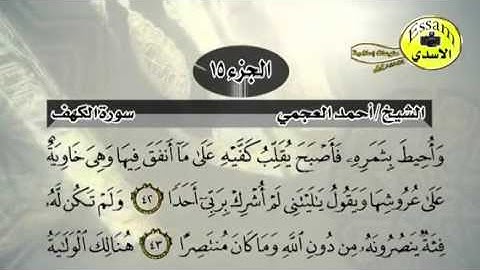 Essam
الأسدي
الجزء ١٥
الشيخ/أحمد العجمي
سورة الكهف
وَأُحِيطَ بِثَمَرِهِۦ فَأَصْبَحَ يُقَلِّبُ كَفَّيْهِ عَلَىٰ مَآ أَنفَقَ فِيهَا وَهِىَ خَاوِيَةٌ
عَلَىٰ عُرُوشِهَا وَيَقُولُ يَٰلَيْتَنِى لَمْ أُشْرِكْ بِرَبِّىٓ أَحَدًا ٤٢ وَلَمْ تَكُن لَّهُۥ
فِئَةٌ يَنصُرُونَهُۥ مِن دُونِ ٱللَّهِ وَمَا كَانَ مُنتَصِرًا ٤٣ هُنَالِكَ ٱلْوَلَٰيَةُ